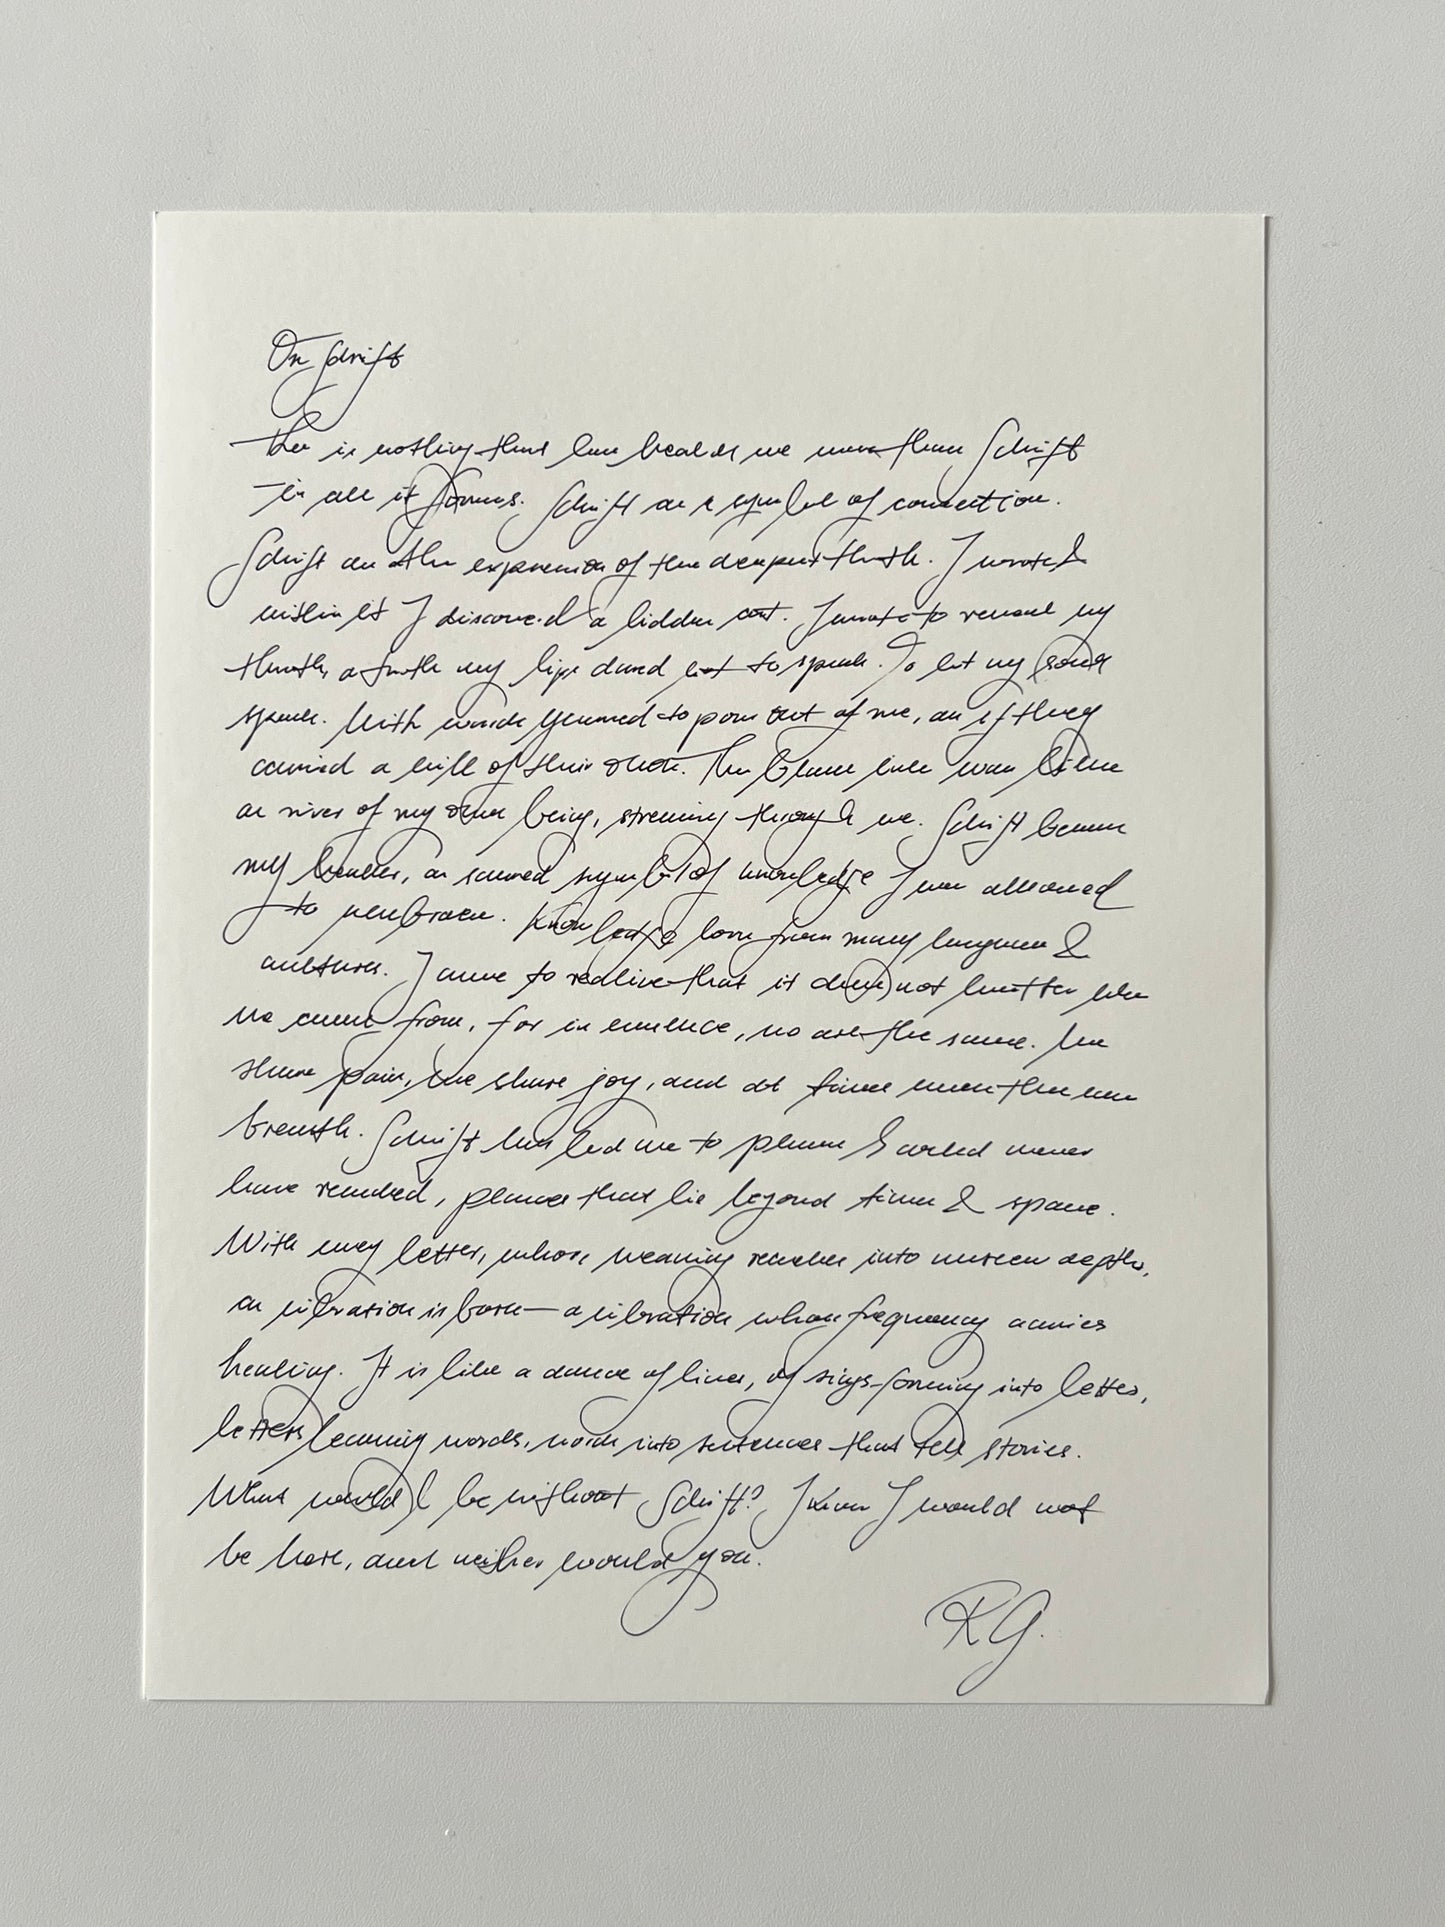 On Schrift
There is nothing that has healed me more than Schrift
in all its forms. Schrift as a symbol of connection.
Schrift as the expression of the deepest truth. I wrote &
within it I discovered a hidden art. I wrote to reveal my
truth, a truth my lips dared not to speak. To let my soul
speak. With words yearned to pour out of me, as if they
carried a will of their own. The black ink was like
a river of my own being, streaming through me. Schrift became
my healer, a sacred symbol of knowledge I was allowed
to embrace. Knowledge born from many languages &
cultures. I came to realise that it does not matter where
we came from, for in essence, we are the same. We
share pain, we share joy, and at times even the same
breath. Schrift has led me to places I could never
have reached, places that lie beyond time & space.
With every letter, whose meaning reaches into unseen depths,
a vibration is born — a vibration whose frequency carries
healing. It is like a dance of lines, of signs forming into letters,
letters becoming words, words into sentences that tell stories.
What would I be without Schrift? I know I would not
be here, and neither would you.
RG.